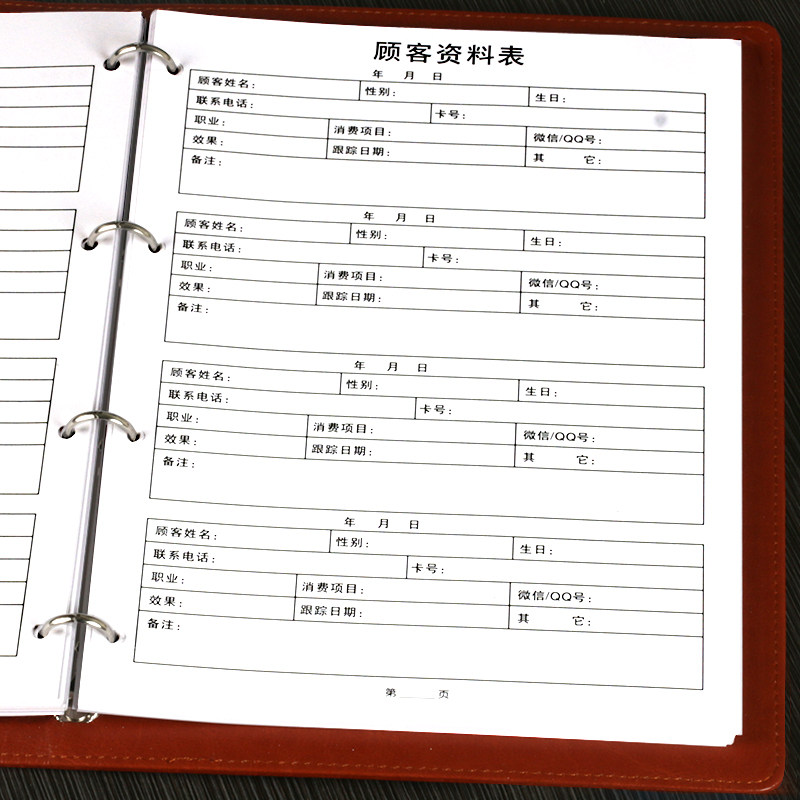 顾客资料表
年 月 日
顾客姓名: 性别: 生日:
联系电话: 卡号:
职业: 消费项目: 微信/QQ号:
效果: 跟踪日期: 其 它:
备注:
年 月 日
顾客姓名: 性别: 生日:
联系电话: 卡号:
职业: 消费项目: 微信/QQ号:
效果: 跟踪日期: 其 它:
备注:
年 月 日
顾客姓名: 性别: 生日:
联系电话: 卡号:
职业: 消费项目: 微信/QQ号:
效果: 跟踪日期: 其 它:
备注:
年 月 日
顾客姓名: 性别: 生日:
联系电话: 卡号:
职业: 消费项目: 微信/QQ号:
效果: 跟踪日期: 其 它:
备注:
第______页